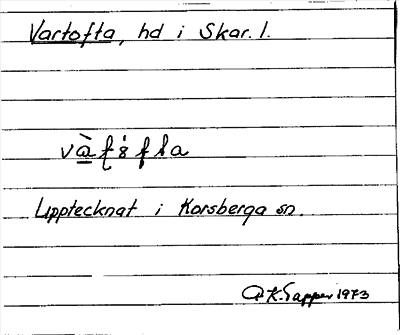 Vartofta, hd i Skar. l.
Upptecknat i Korsberga sn.
K. Sapper 1973